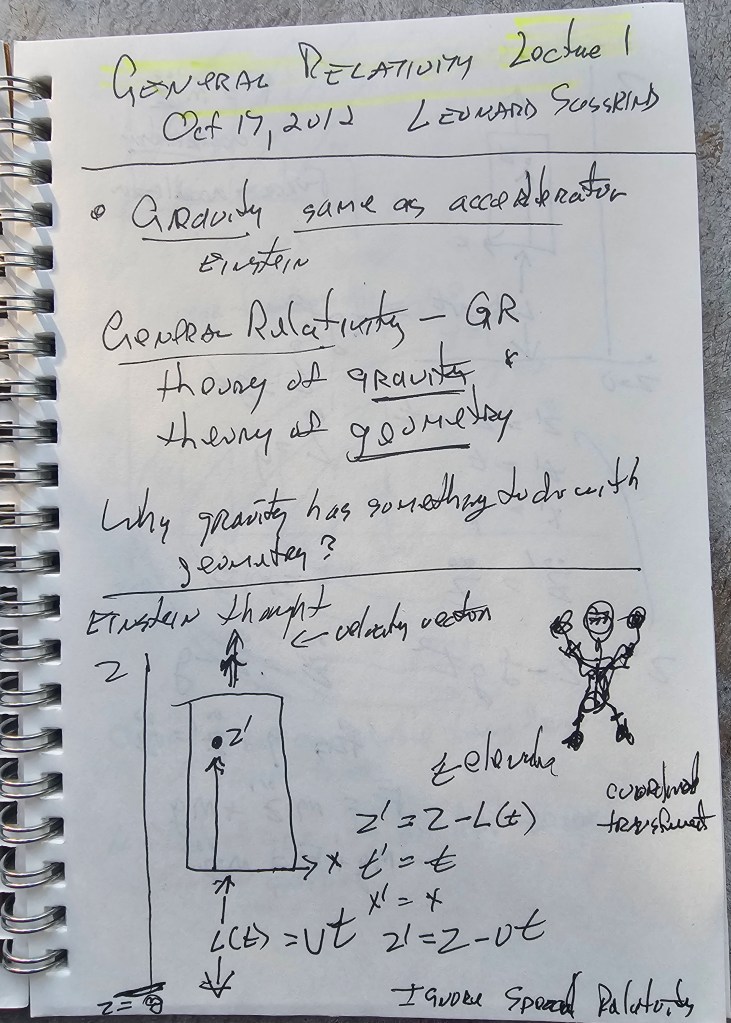 GENERAL RELATIVITY Lectue 1
Oct 17, 2012 LEONARD SUSSKIND
• Gravity same as accelerator
EINSTEIN
General Relativity – GR
theory of gravity *
theory of geometry
Why gravity has something to do with
geometry?
EINSTEIN thought
← velocity vector
z
z'
z elevator
coordinat
transformat
z' = z - L(t)
x t' = t
x' = x
L(t) = vt z' = z - vt
z = 0
Ignore Special Relativity